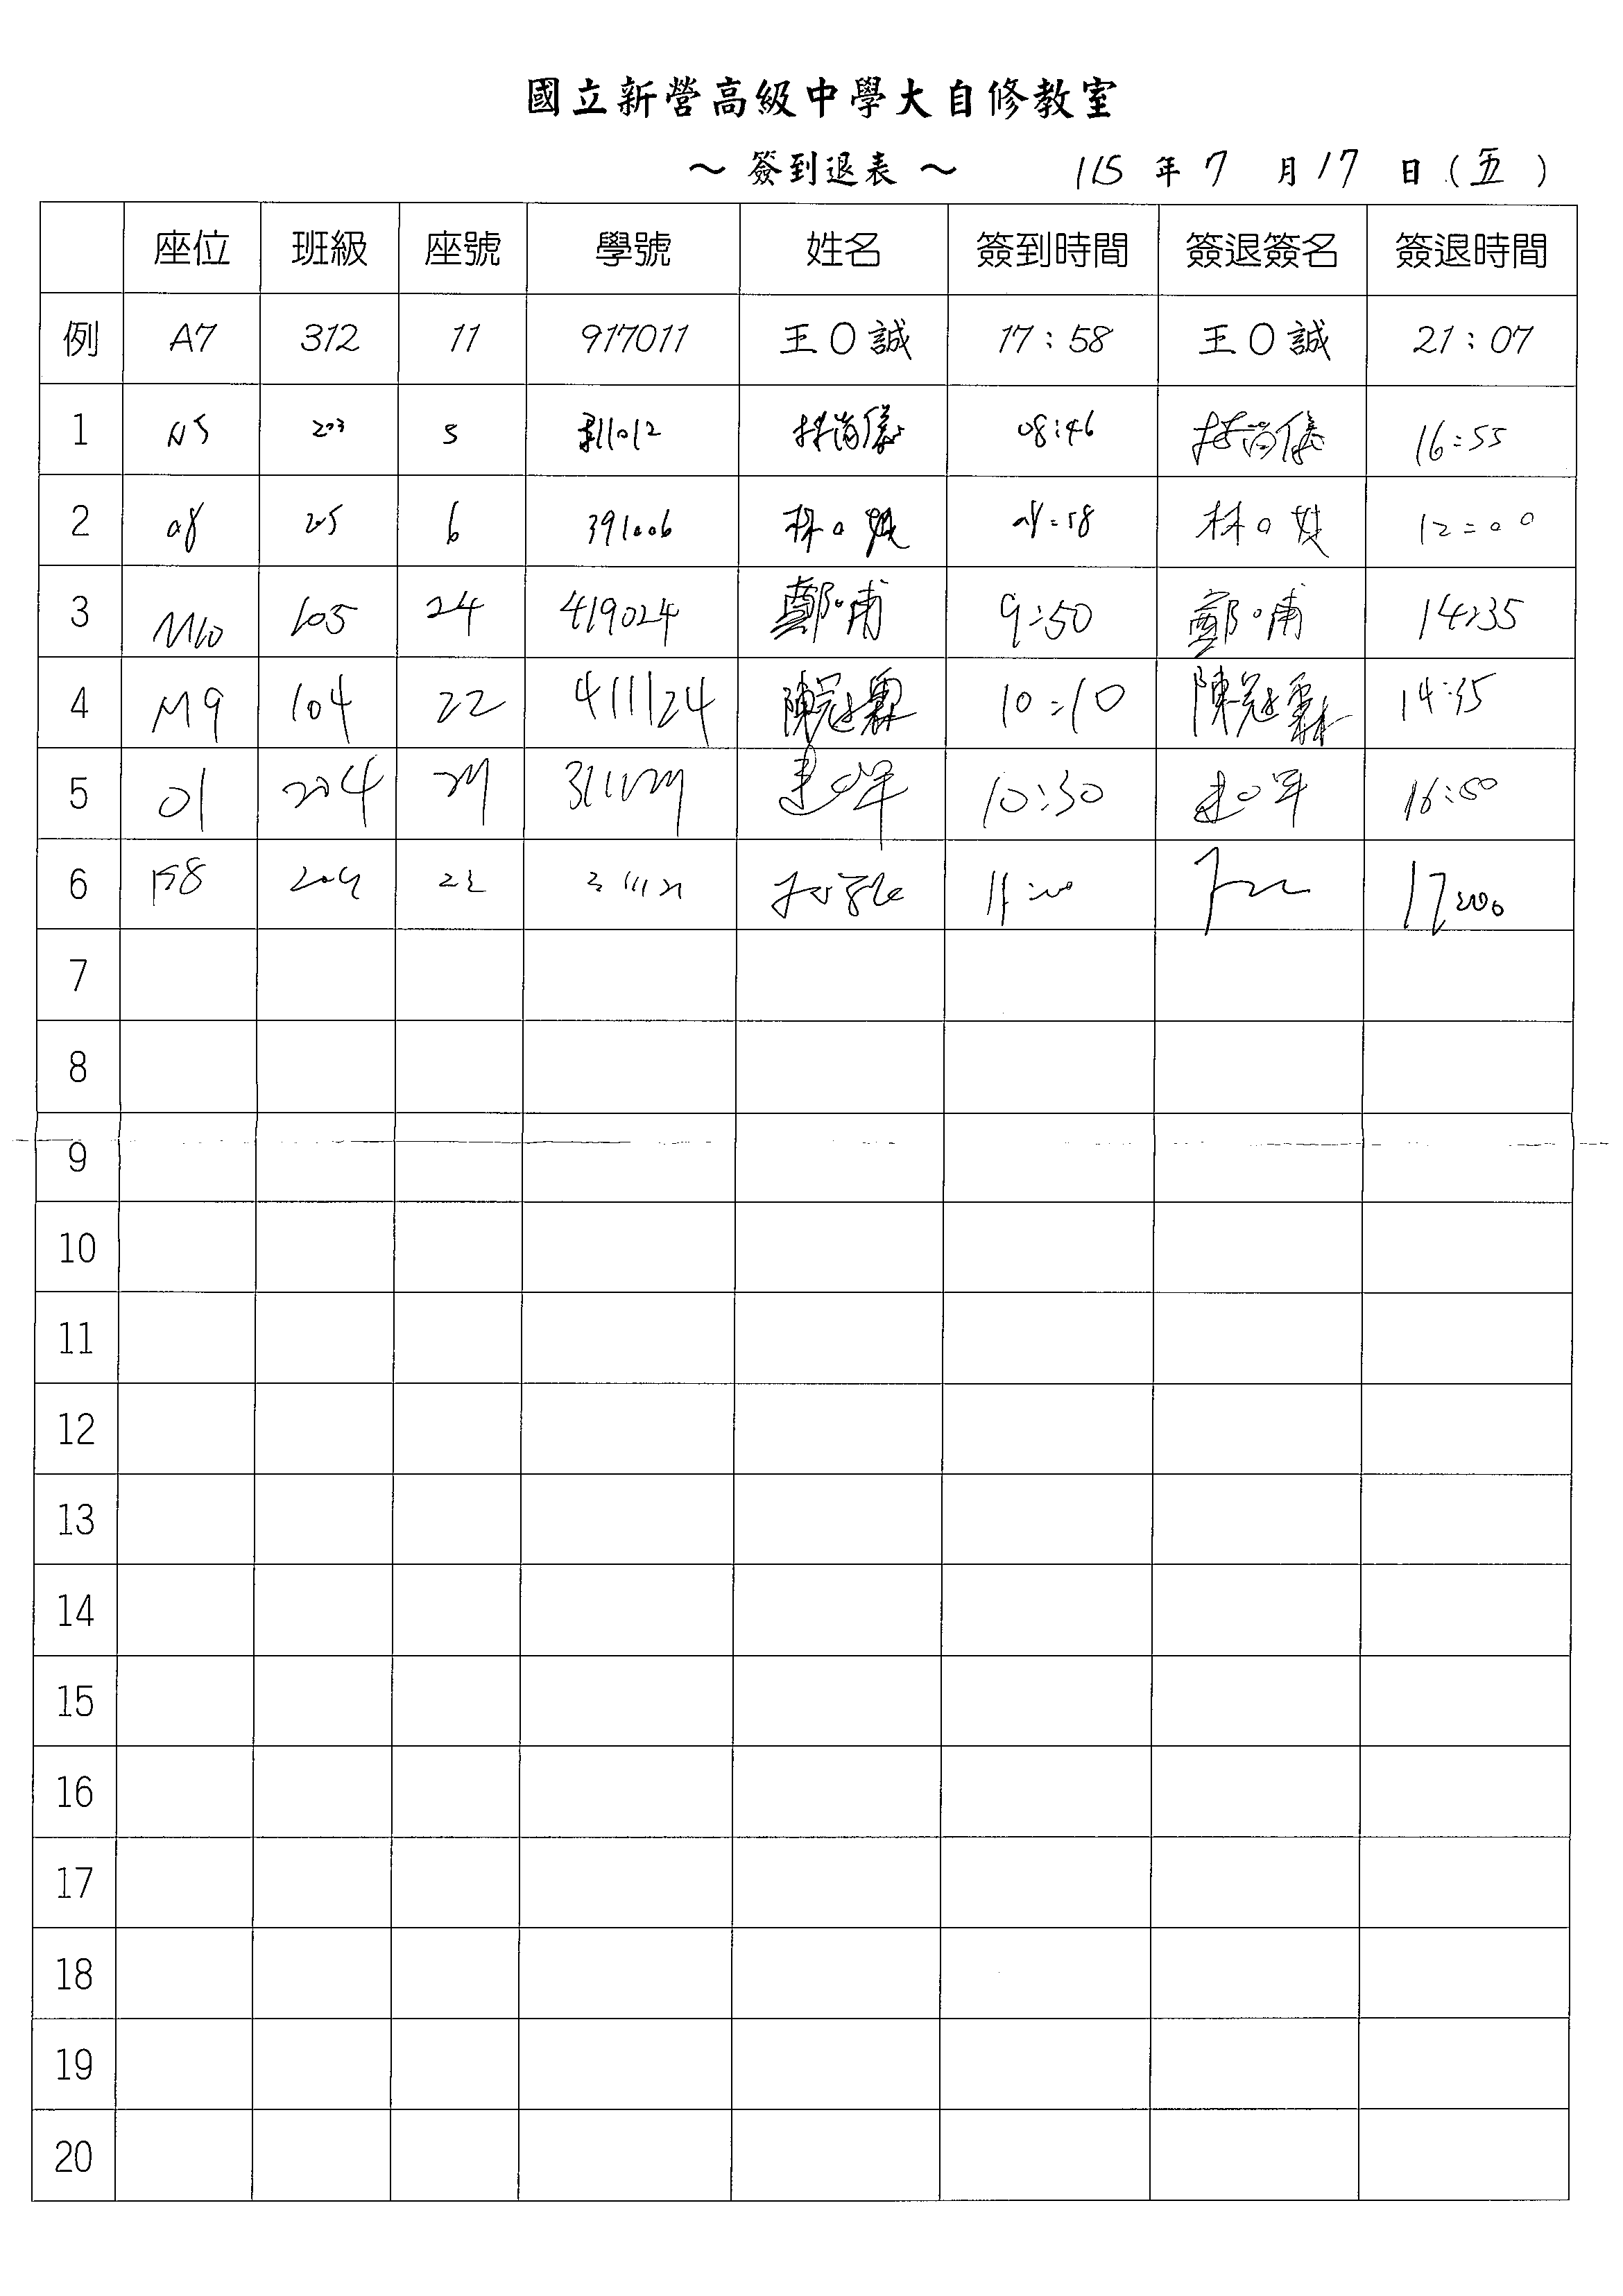 國立新營高級中學大自修教室
～ 簽到退表 ～ 115 年 7 月 17 日 (五)
座位 班級 座號 學號 姓名 簽到時間 簽退簽名 簽退時間
例 A7 312 11 917011 王O誠 17:58 王O誠 21:07
1 N5 203 5 311012 08:46 16:55
2 a8 205 6 391006 林O 林O 12:00
3 M10 105 24 419024 鄭O甫 9:50 鄭O甫 14:35
4 M9 104 22 411124 陳冠霖 10:10 陳冠霖 14:35
5 01 204 10:30 16:50
6 F8 204 22
7
8
9
10
11
12
13
14
15
16
17
18
19
20